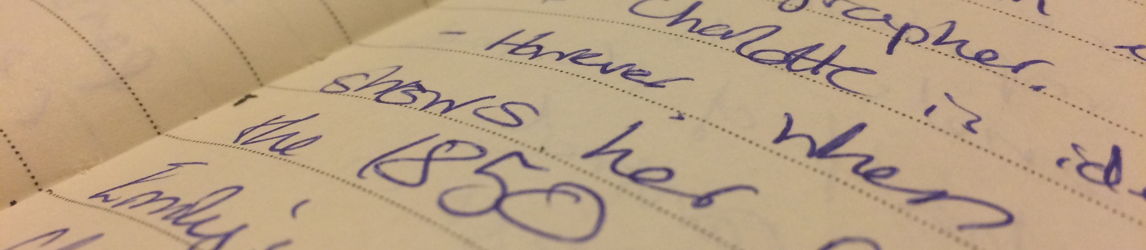 ographer.
Charlotte is id
- However, when
shows her
the 1850
Emily's